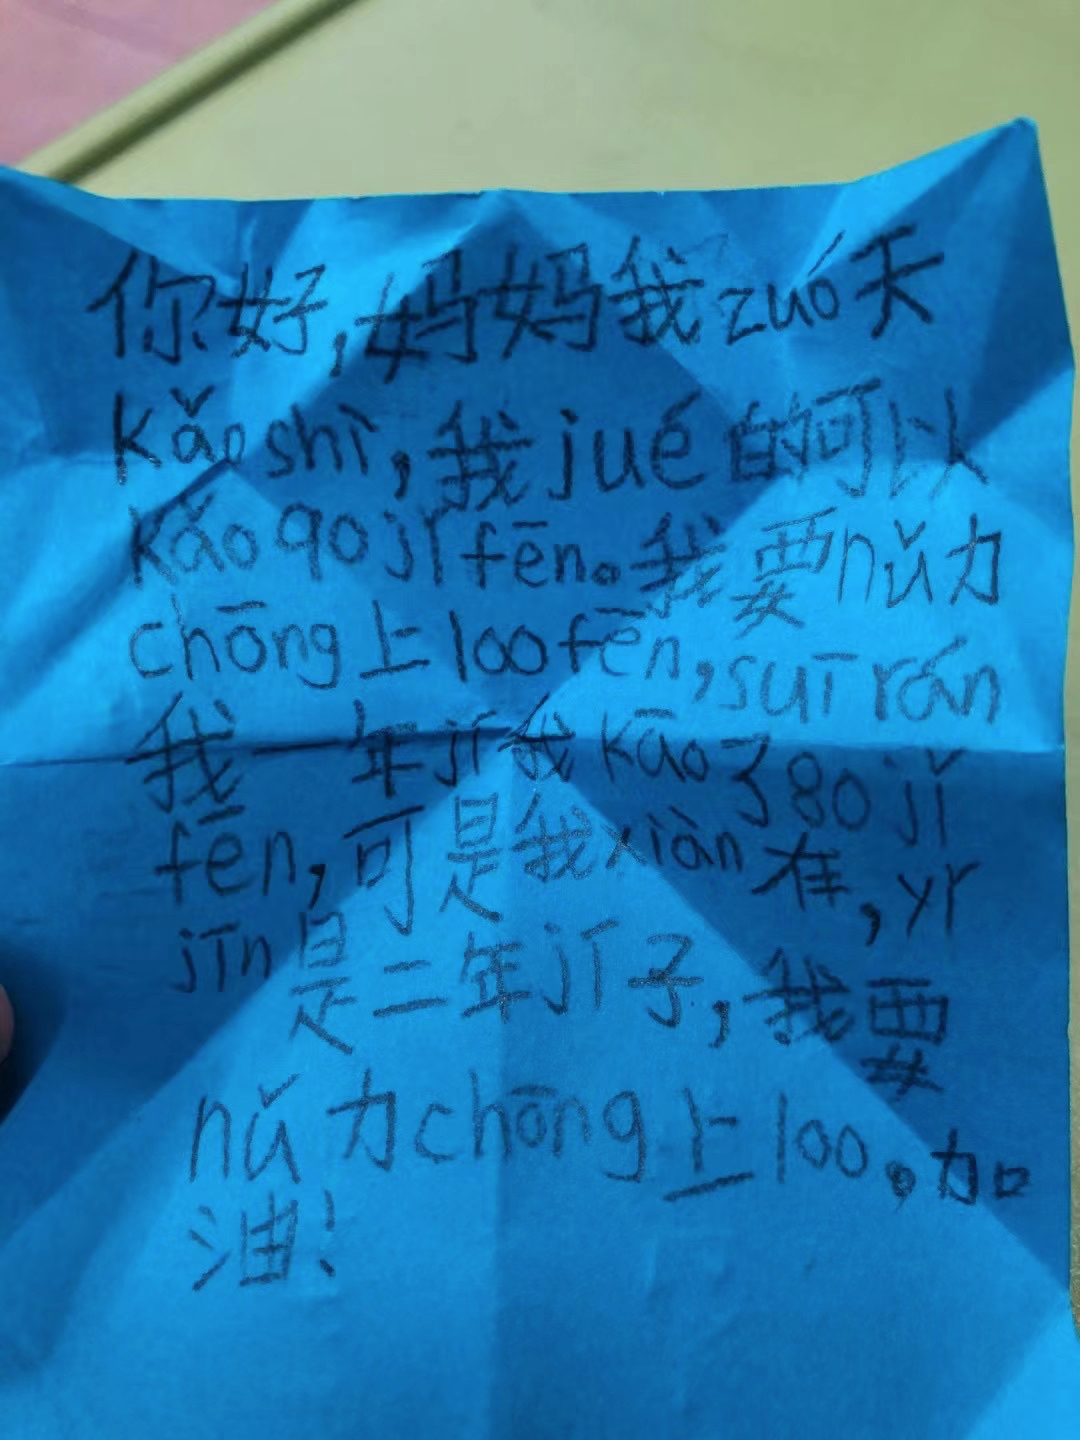 你好,妈妈我zuó天
kǎoshì,我jué的可以
kǎo90jǐfēn。我要nǔ力
chōng上100fēn,suīrán
我一年jí我kǎo了80jǐ
fēn,可是我xiàn在,yǐ
jīn是二年jí子,我要
nǔ力chōng上100。加
油!